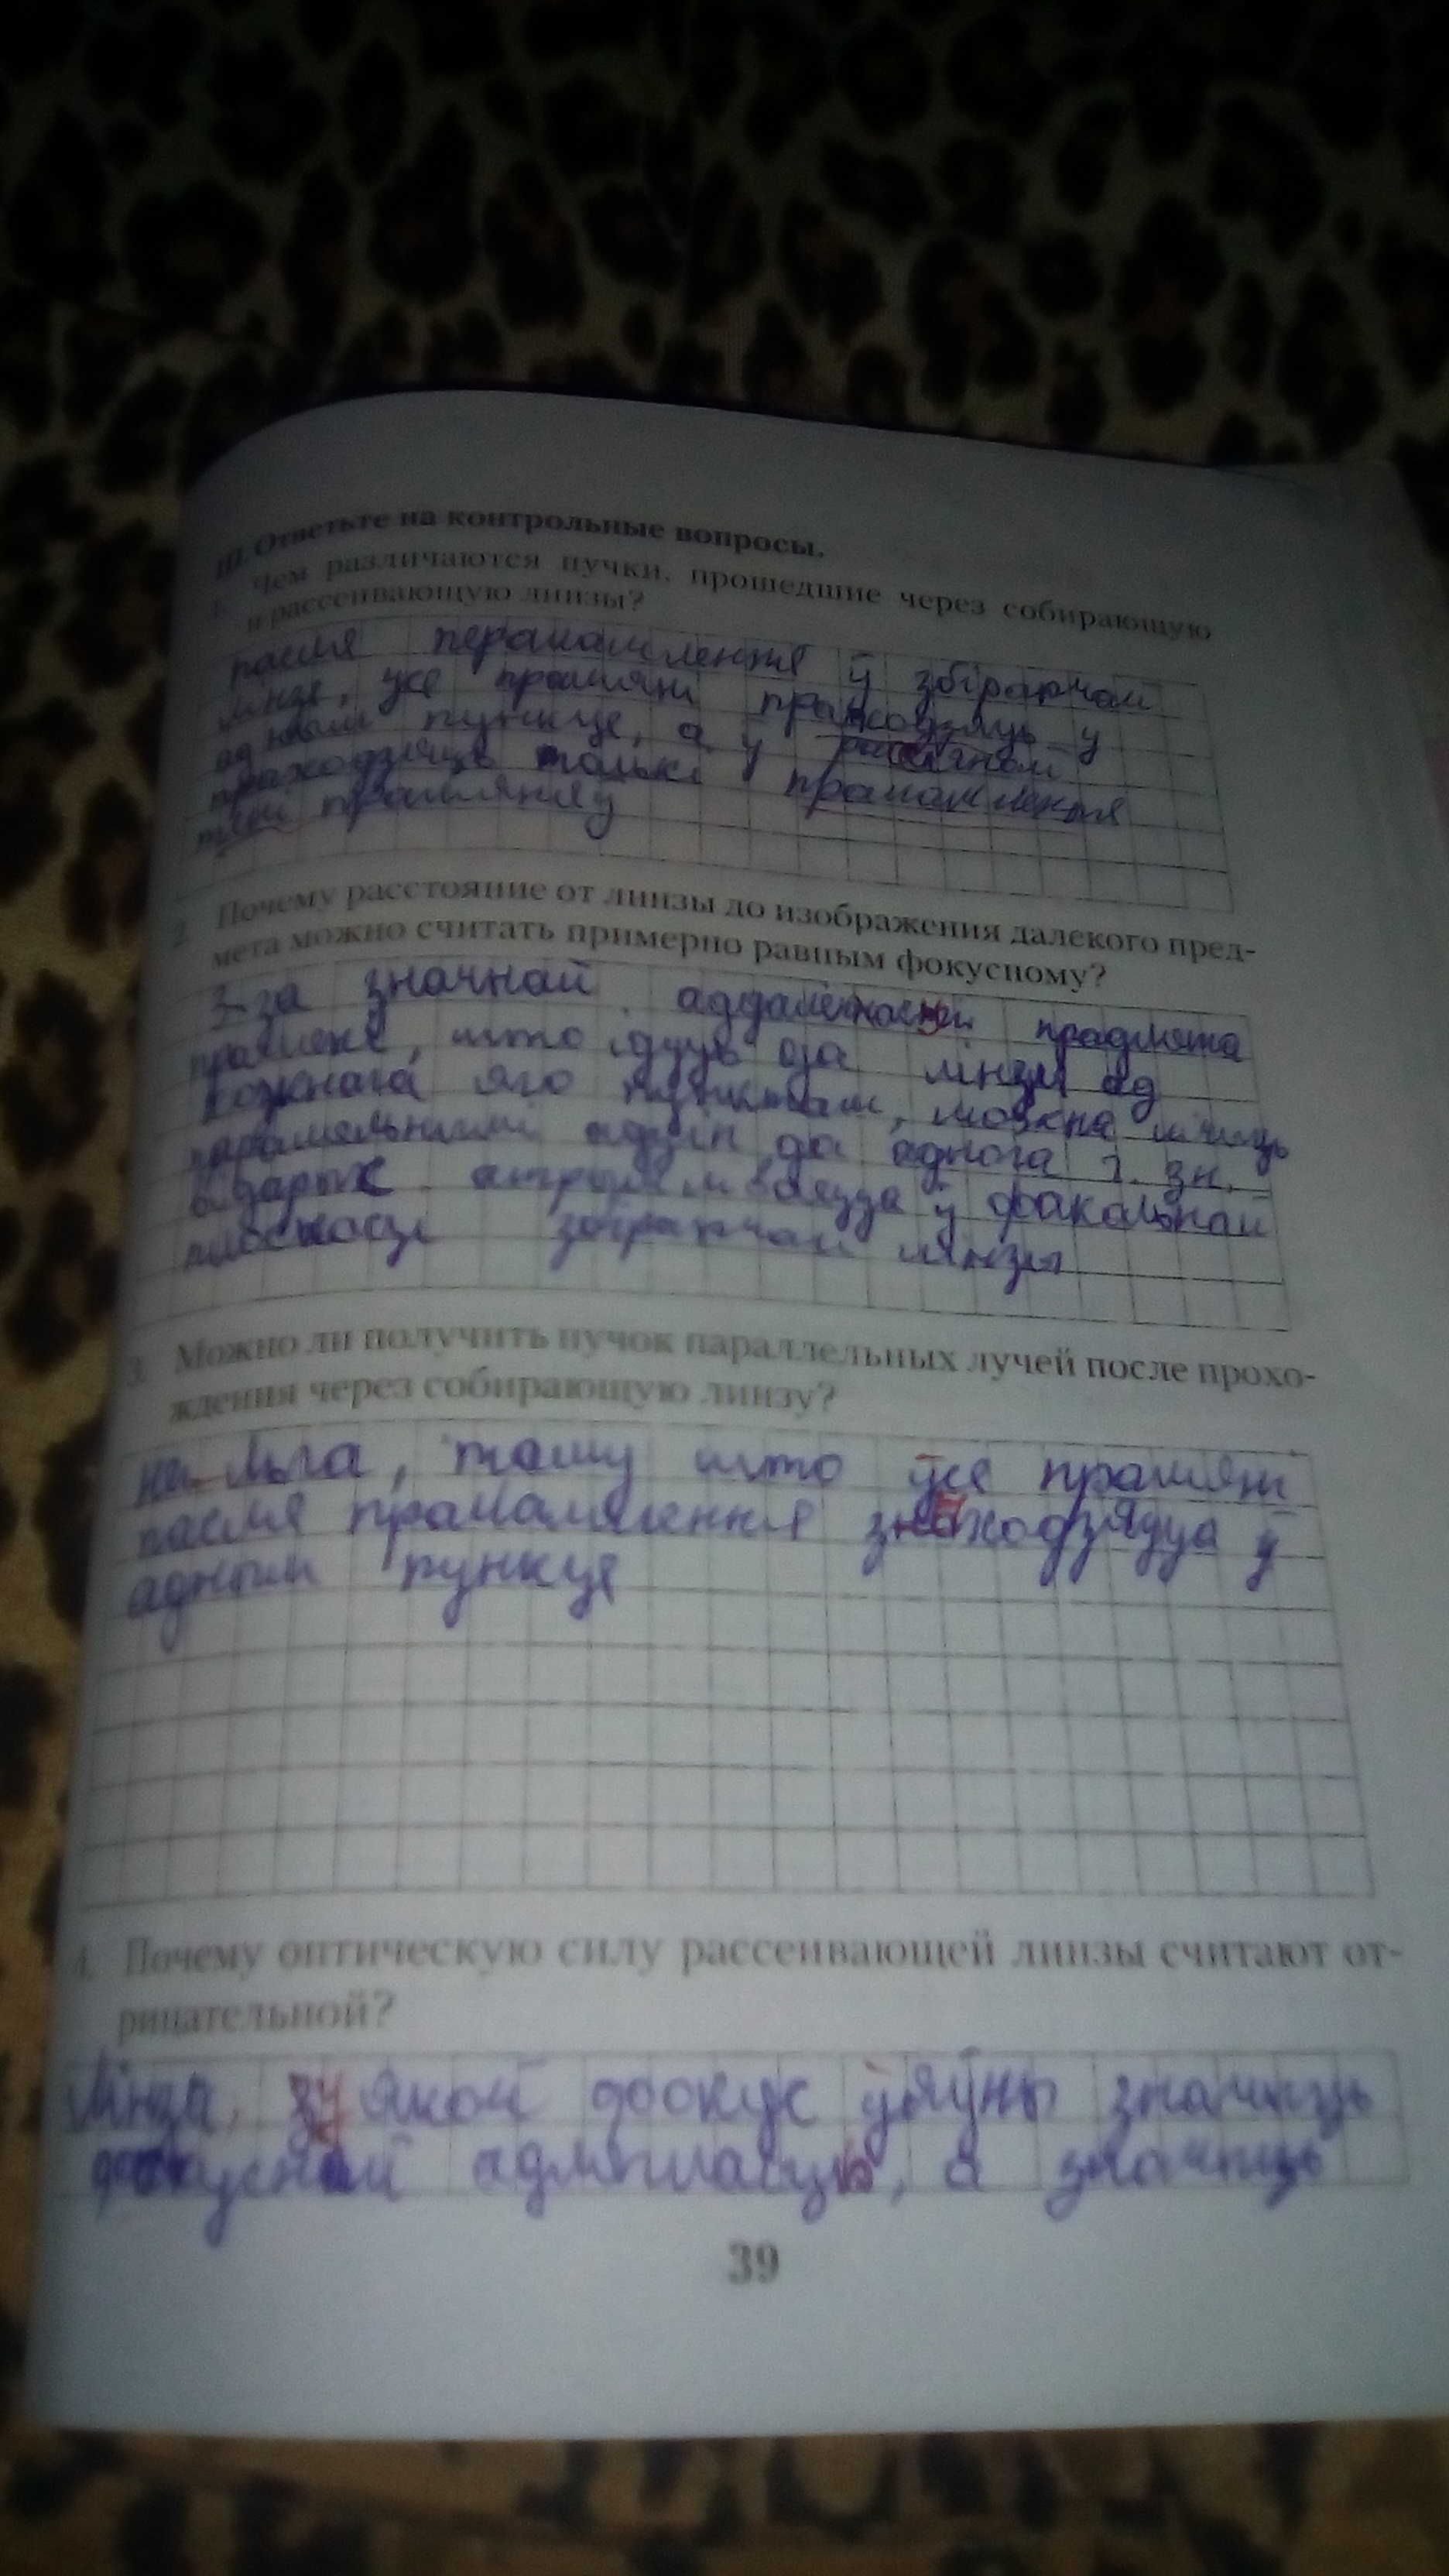 III. Ответьте на контрольные вопросы.
1. Чем различаются пучки, прошедшие через собирающую
и рассеивающую линзы?
пасля пераламлення ў збіраючай
лінзе, усе прамяні праходзяць у
адным пункце, а у
праходзяць толькі праламлення
прамяняў
2. Почему расстояние от линзы до изображения далекого пред-
мета можно считать примерно равным фокусному?
З-за значнай аддаленнасти прадмета
прамені, што ідуць да лінзы ад
кожнага яго пункта, можна лічыць
паралельнымі адзін да аднога г. зн.
відарыс атрымліваецца ў факальнай
плоскасці збіраючай линзы
3. Можно ли получить пучок параллельных лучей после прохо-
ждения через собирающую линзу?
не льга, таму што ўсе прамяні
пасля праламлення знаходзяцца ў
адным пункце
4. Почему оптическую силу рассеивающей линзы считают от-
рицательной?
Лінза, у якой фокус ўяўны значыць
адмоўлаць, а значыць
39